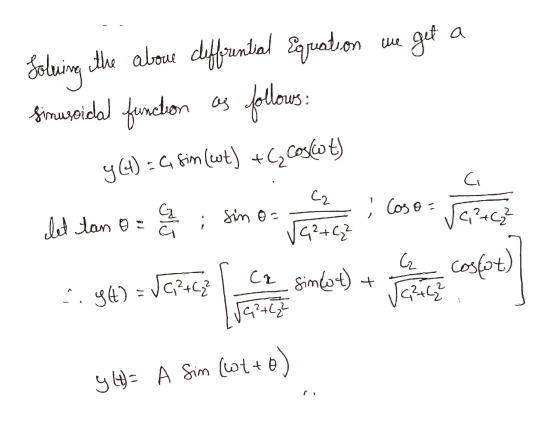 Solving the above differential Equation we get a
sinusoidal function as follows:
y(t) = C₁ Sin(ωt) + C₂ Cos(ωt)
let tan θ = C₂/C₁ ; Sin θ = C₂/√(C₁²+C₂²) ; Cos θ = C₁/√(C₁²+C₂²)
∴ y(t) = √(C₁²+C₂²) [ C₂/√(C₁²+C₂²) Sin(ωt) + C₂/√(C₁²+C₂²) Cos(ωt) ]
y(t) = A Sin (ωt + θ)